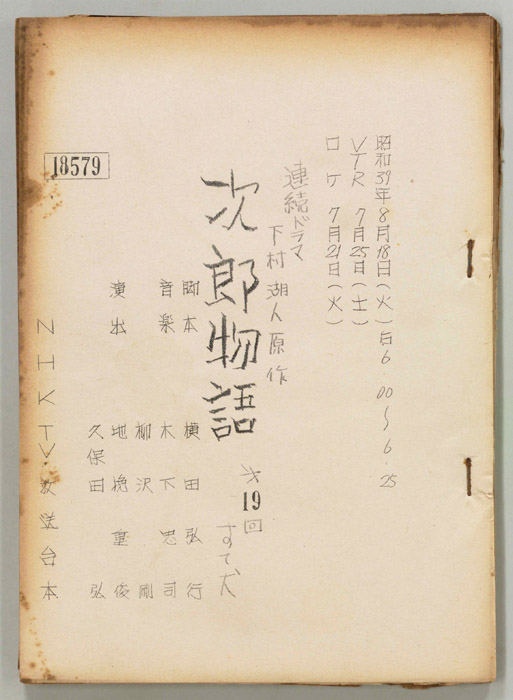 昭和39年8月18日(火)后6.00~6.25
VTR 7月25日(土)
ロケ 7月21日(火)
連続ドラマ
下村湖人原作
次郎物語
第19回
すて犬
脚本 横田弘行
音楽 木下忠司
柳沢 剛
演出 地挽重俊
久保田 弘
NHKTV.放送台本
18579